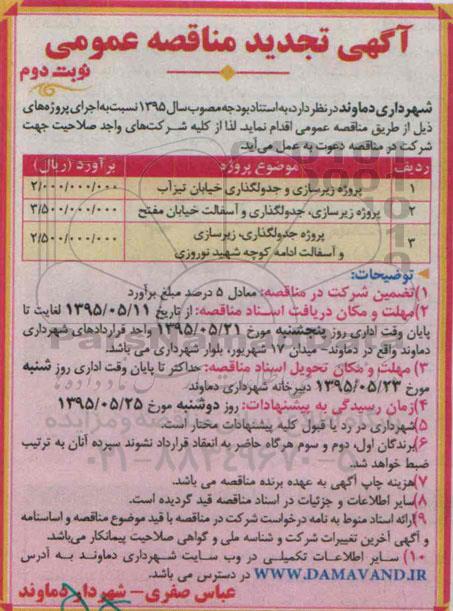 آگهی تجدید مناقصه عمومی
نوبت دوم
شهرداری دماوند در نظر دارد، به استناد بودجه مصوب سال ۱۳۹۵ نسبت به اجرای پروژه‌های
ذیل از طریق مناقصه عمومی اقدام نماید. لذا از کلیه شرکت‌های واجد صلاحیت جهت
شرکت در مناقصه دعوت به عمل می‌آید.
ردیف موضوع پروژه برآورد (ریال)
۱ پروژه زیرسازی و جدولگذاری خیابان تیزآب ۲/۰۰۰/۰۰۰/۰۰۰
۲ پروژه زیرسازی، جدولگذاری و آسفالت خیابان مفتح ۳/۵۰۰/۰۰۰/۰۰۰
۳ پروژه جدولگذاری، زیرسازی ۲/۵۰۰/۰۰۰/۰۰۰
و آسفالت ادامه کوچه شهید نوروزی
توضیحات:
۱)تضمین شرکت در مناقصه: معادل ۵ درصد مبلغ برآورد
۲)مهلت و مکان دریافت اسناد مناقصه: از تاریخ ۱۳۹۵/۰۵/۱۱ لغایت تا
پایان وقت اداری روز پنجشنبه مورخ ۱۳۹۵/۰۵/۲۱ واحد قراردادهای شهرداری
دماوند واقع در دماوند- میدان ۱۷ شهریور، بلوار شهرداری می باشد.
۳) مهلت و مکان تحویل اسناد مناقصه: حداکثر تا پایان وقت اداری روز شنبه
مورخ ۱۳۹۵/۰۵/۲۳ دبیرخانه شهرداری دماوند
۴)زمان رسیدگی به پیشنهادات: روز دوشنبه مورخ ۱۳۹۵/۰۵/۲۵
۵)شهرداری در رد یا قبول کلیه پیشنهادات مختار است.
۶)برندگان اول، دوم و سوم هرگاه حاضر به انعقاد قرارداد نشوند سپرده آنان به ترتیب
ضبط خواهد شد.
۷)هزینه چاپ آگهی به عهده برنده مناقصه می باشد.
۸)سایر اطلاعات و جزئیات در اسناد مناقصه قید گردیده است.
۹)ارائه اسناد منوط به نامه درخواست شرکت در مناقصه با قید موضوع مناقصه و اساسنامه
و آگهی آخرین تغییرات شرکت و شناسه ملی و گواهی صلاحیت پیمانکار می‌باشد.
۱۰) سایر اطلاعات تکمیلی در وب سایت شهرداری دماوند به آدرس
WWW.DAMAVAND.IR در دسترس می باشد.
عباس صفری – شهردار دماوند